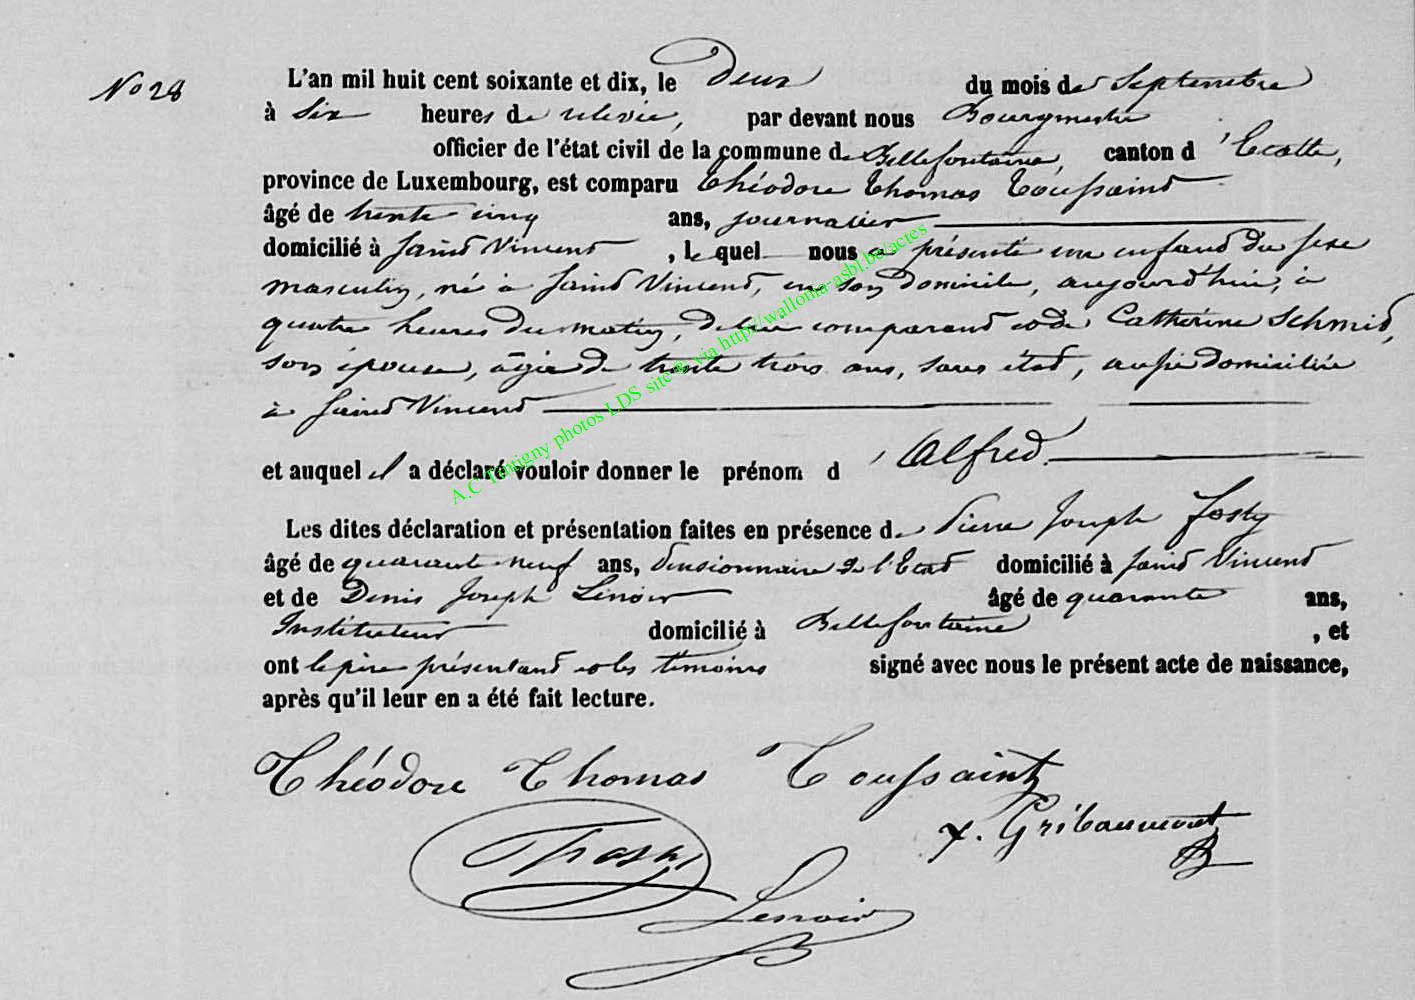 No 28
L'an mil huit cent soixante et dix, le Deux du mois de Septembre
à Six heures de relevée, par devant nous Bourgmestre
officier de l'état civil de la commune de Bellefontaine, canton d'Etalle,
province de Luxembourg, est comparu Théodore Thomas Toussaint
âgé de trente cinq ans, journalier
domicilié à Saint Vincent, lequel nous a présenté un enfant du sexe
masculin, né à Saint Vincent, en son domicile, aujourd'hui, à
quatre heures du matin, de lui comparant et de Catherine Schmid,
son épouse, âgée de trente trois ans, sans état, aussi domiciliée
à Saint Vincent
et auquel il a déclaré vouloir donner le prénom d'Alfred.
Les dites déclaration et présentation faites en présence de Pierre Joseph Fosty
âgé de quarante neuf ans, Pensionnaire de l'Etat domicilié à Saint Vincent
et de Denis Joseph Lenoir âgé de quarante ans,
Instituteur domicilié à Bellefontaine, et
ont le père présentant et les témoins signé avec nous le présent acte de naissance,
après qu'il leur en a été fait lecture.
Théodore Thomas Toussaint
Gribaumont
Lenoir
A.C Tintigny photos LDS site & via http://wallonia-asbl.be/actes